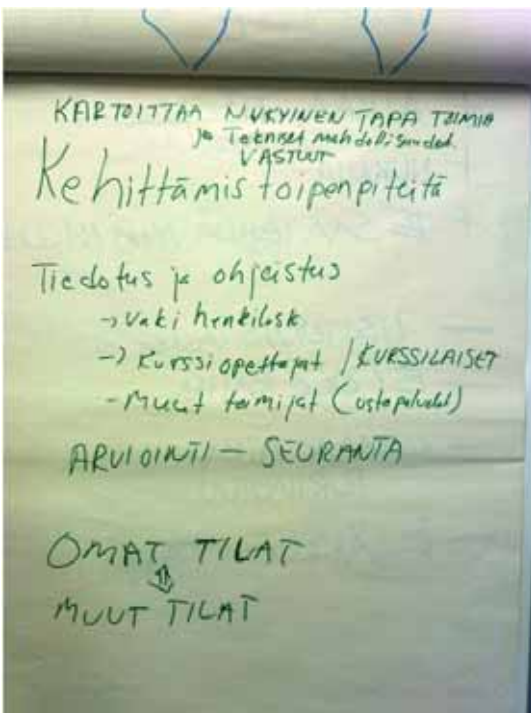 KARTOITTAA NYKYINEN TAPA TOIMIA
ja Tekniset mahdollisuudet
VASTUUT
Kehittämis toipenpiteitä
Tiedotus ja ohjeistus
-> Vaki henkilösk
-> Kurssiopettajat / KURSSILAISET
- Muut toimijat (ostopalvelut)
ARVIOINTI - SEURANTA
OMAT TILAT
⇕
MUUT TILAT